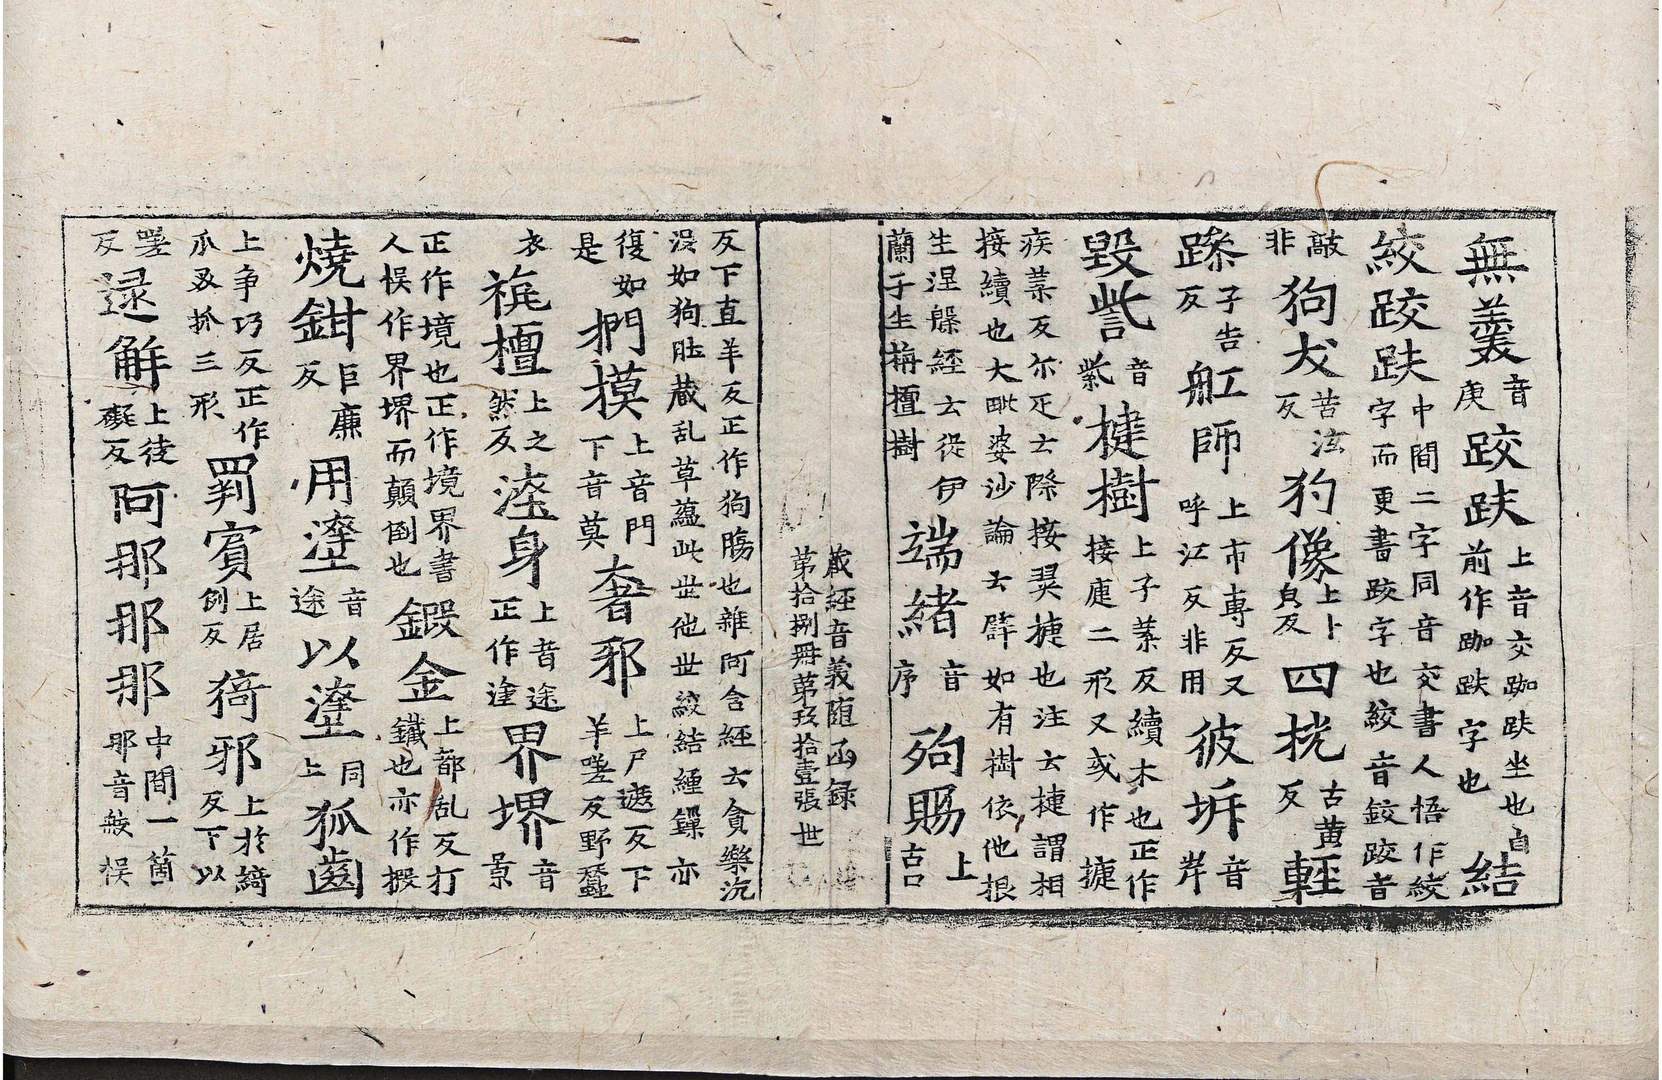 無羹音庚跤趺上音交跏趺坐也自前作跏趺字也結
絞跤趺中間二字同音交書人悟作絞字而更書跤字也絞音鉸跤音
敲非狗犬苦泫反犳像上卜皃反四挄古黄反輊
躁子告反舡師上市専反又呼江反非用彼坼音岸
毀訾音紫楗樹上子葉反續木也正作接二形又或作捷
疾葉反尒疋云際接翜捷也注云捷謂相接續也大毗婆沙論云譬如有樹依他根
生涅槃經云從伊蘭子生栴檀樹端緒音序狥賜上古口
蔵經音義随函録第拾捌冊第玖拾壹張世
反下直羊反正作狗腸也雜阿含經云貪樂沉沒如狗肚藏乱草蘊此世他世絞結纏鏁亦
復如是捫摸上音門下音莫奢邪上尸遮反下羊嗟反野蠶
衣栴檀上之然反塗身上音途正作塗界堺音景
正作境也正作境界書人悮作界堺而顛倒也鍛金上都乱反打鐵也亦作
燒鉗巨廉反用塗音途以塗同上狐齒
上争巧反正作爪叉抓三形罽賓上居例反猗邪上於綺反下以
嗟反逯解上徒礙反阿那那那中間一箇那音悮